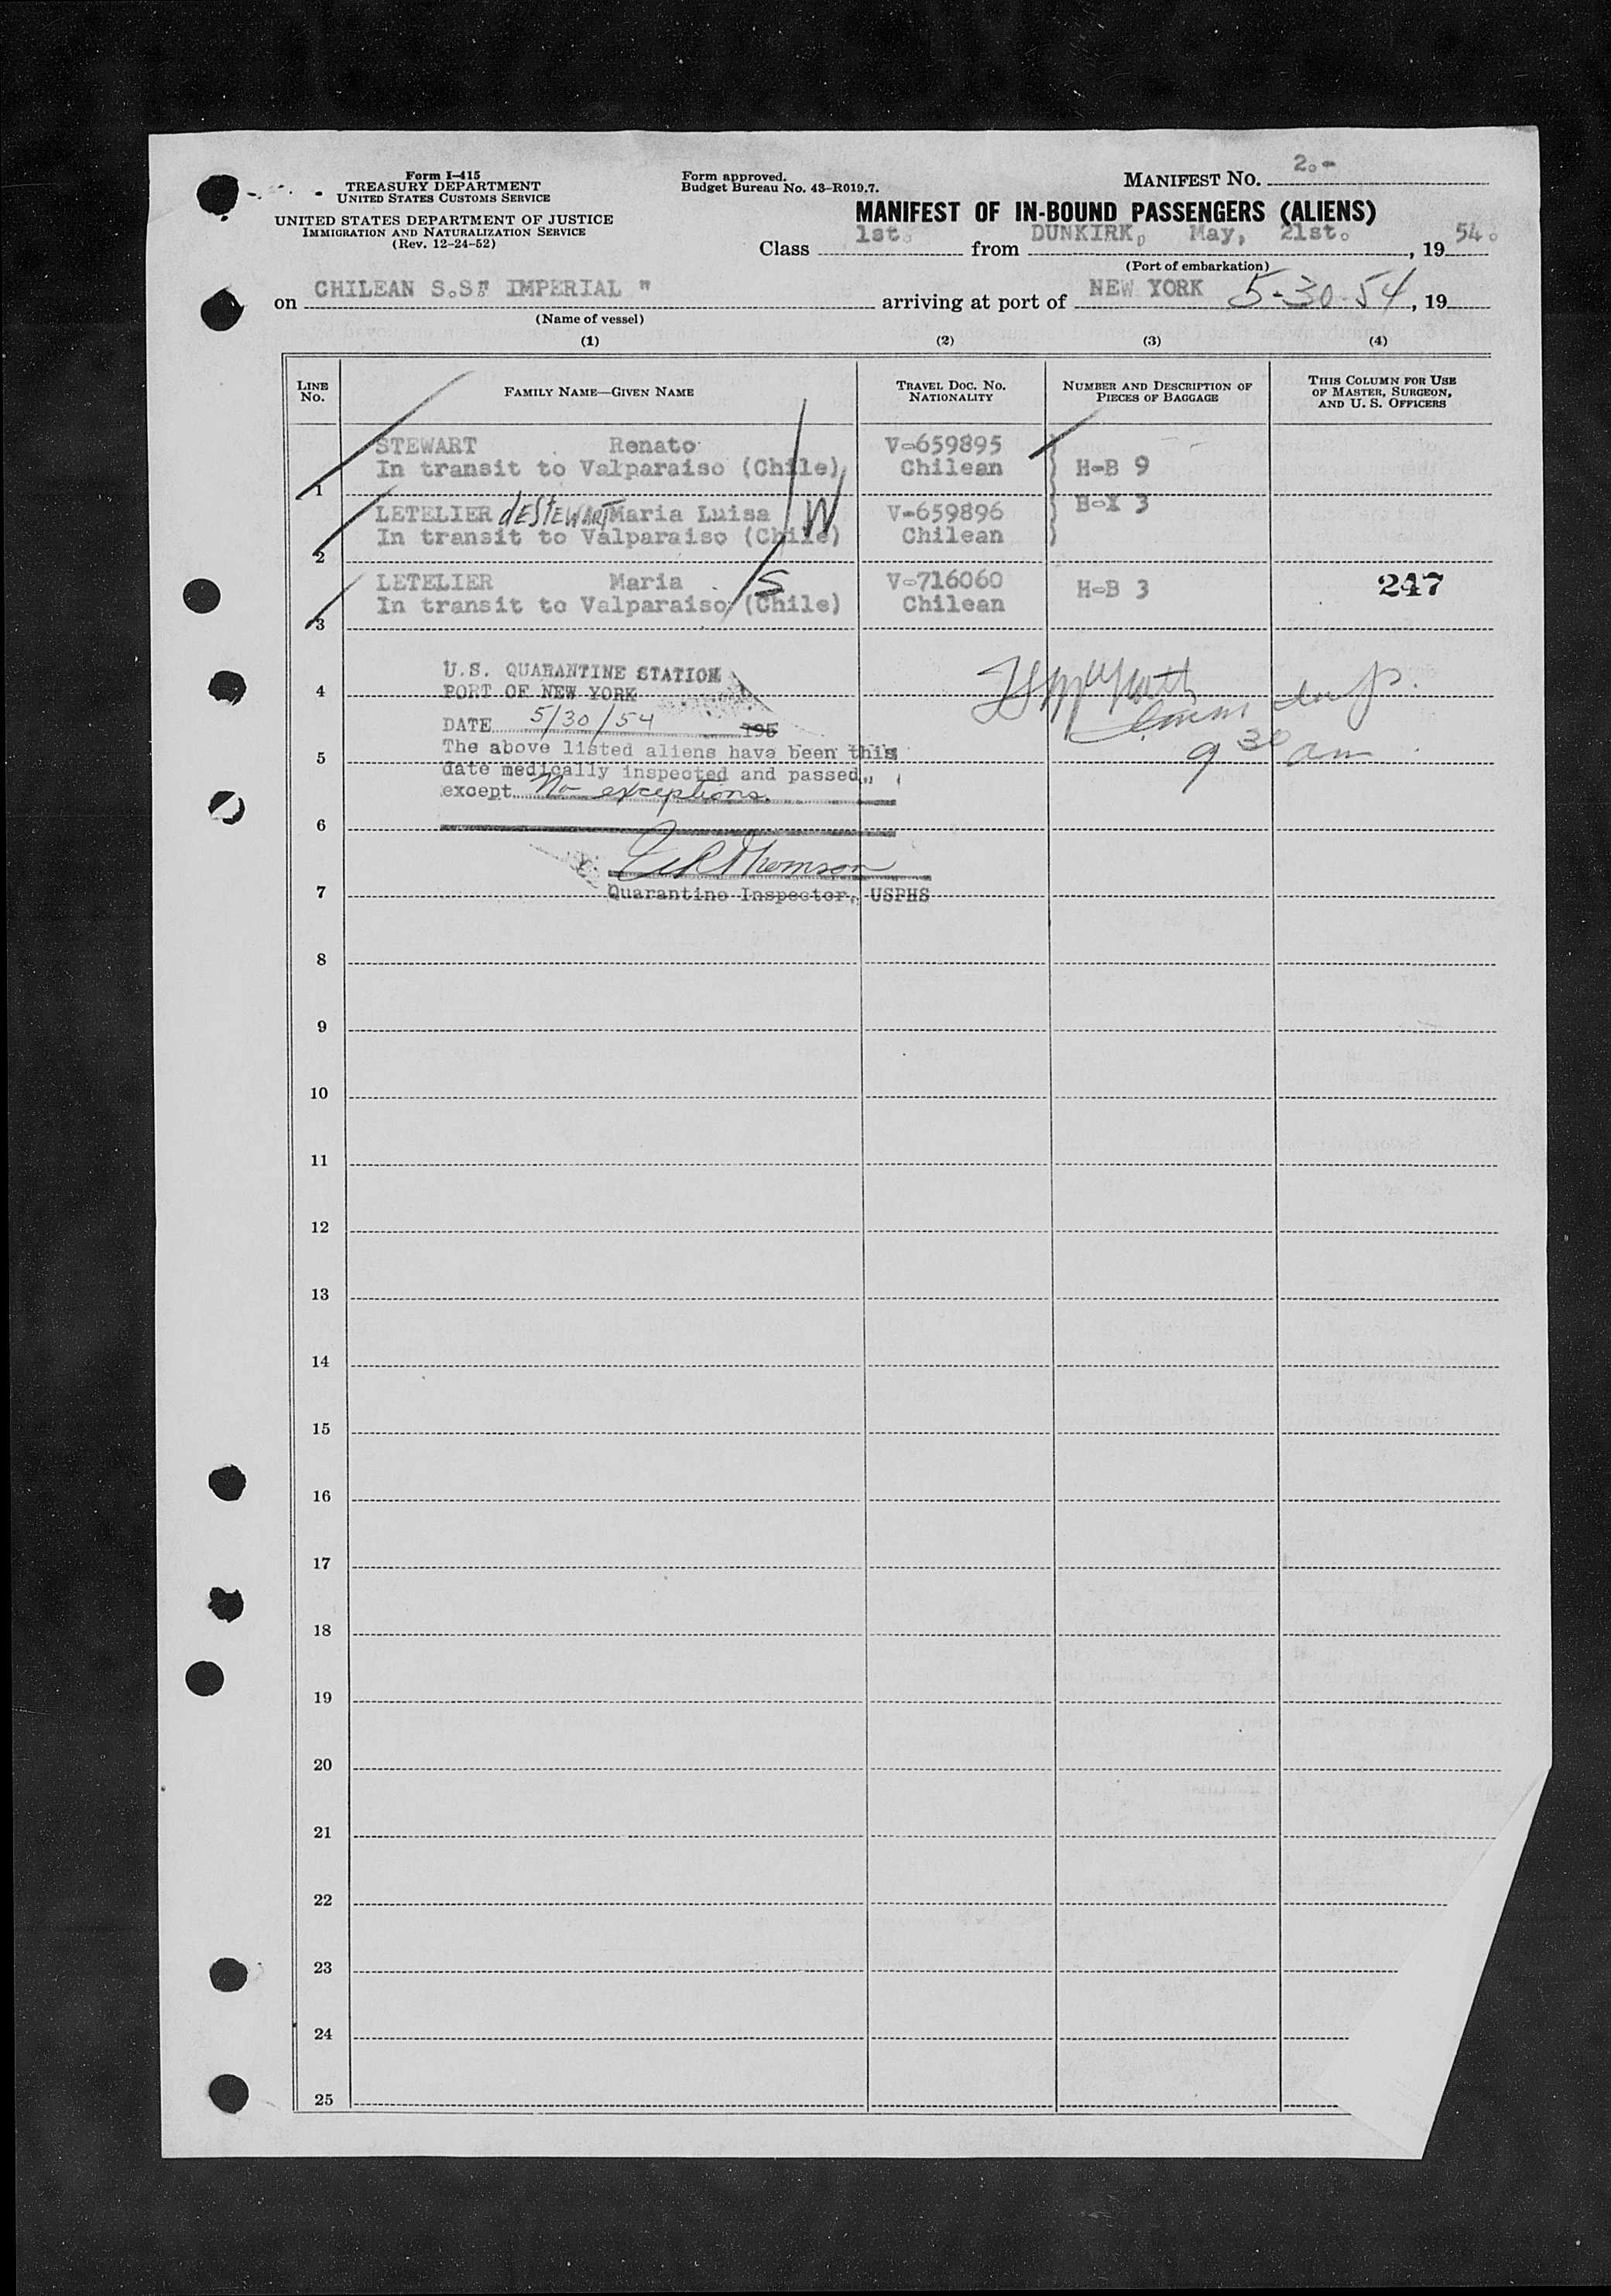 Form I-415
TREASURY DEPARTMENT
UNITED STATES CUSTOMS SERVICE
UNITED STATES DEPARTMENT OF JUSTICE
IMMIGRATION AND NATURALIZATION SERVICE
(Rev. 12-24-52)
Form approved.
Budget Bureau No. 43-R019.7.
MANIFEST NO. 2.-
MANIFEST OF IN-BOUND PASSENGERS (ALIENS)
Class 1st. from DUNKIRK, May, 21st. , 19 54.
(Port of embarkation)
on CHILEAN S.S." IMPERIAL " arriving at port of NEW YORK 5-30-54 , 19
(Name of vessel)
(1) (2) (3) (4)
LINE NO. FAMILY NAME—GIVEN NAME TRAVEL DOC. NO. NATIONALITY NUMBER AND DESCRIPTION OF PIECES OF BAGGAGE THIS COLUMN FOR USE OF MASTER, SURGEON, AND U. S. OFFICERS
STEWART Renato V-659895
In transit to Valparaiso (Chile) Chilean H-B 9
1
LETELIER deSTEWART Maria Luisa W V-659896 B-X 3
In transit to Valparaiso (Chile) Chilean
2
LETELIER Maria S V-716060 H-B 3 247
In transit to Valparaiso (Chile) Chilean
3
U.S. QUARANTINE STATION
4 PORT OF NEW YORK
DATE 5/30/54 195
The above listed aliens have been this
5
date medically inspected and passed,
except No exceptions.
9 30 am
6
Thomson
7 Quarantine Inspector, USPHS
8
9
10
11
12
13
14
15
16
17
18
19
20
21
22
23
24
25